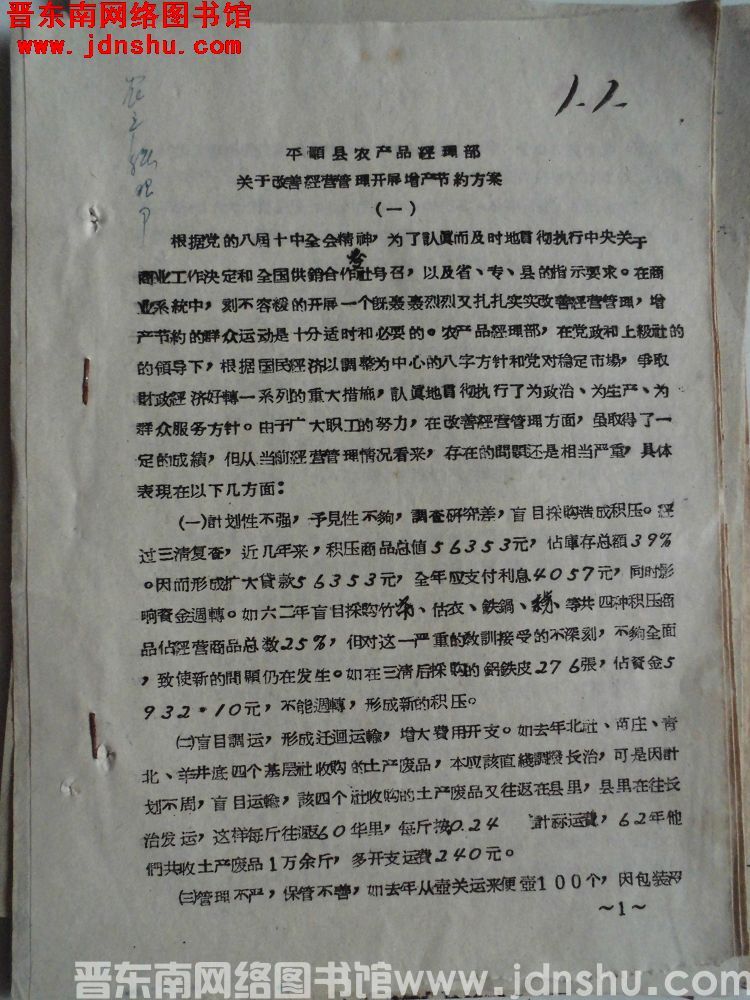 晋东南网络图书馆
www.jdnshu.com
1.1.
农产
经理
平順县农产品經理部
关于改善經营管理开展增产节約方案
(一)
根据党的八届十中全会精神，为了認眞而及时地貫彻执行中央关于
商业工作决定和全国供銷合作社号召，以及省、专、县的指示要求。在商
业系統中，刻不容緩的开展一个既轰轰烈烈又扎扎实实改善經营管理，增
产节約的群众运动是十分适时和必要的。农产品經理部，在党政和上級社的
的領导下，根据国民經济以調整为中心的八字方針和党对稳定市場，爭取
財政經济好轉一系列的重大措施，認眞地貫彻执行了为政治、为生产、为
群众服务方針。由于广大职工的努力，在改善經营管理方面，虽取得了一
定的成績，但从当前經营管理情况看来，存在的問題还是相当严重，具体
表現在以下几方面：
(一)計划性不强，予見性不夠，調查研究差，盲目採购造成积压。經
过三清复查，近几年来，积压商品总値56353元，佔庫存总額39%
。因而形成扩大貸款56353元，全年应支付利息4057元，同时影
响資金週轉。如六二年盲目採购竹 、估衣、鉄鍋、 等共四种积压商
品佔經营商品总数25%，但对这一严重的教訓接受的不深刻，不夠全面
，致使新的問題仍在发生。如在三清后採购的鋁鉄皮276張，佔資金5
932.10元，不能週轉，形成新的积压。
(二)盲目調运，形成迂迴运輸，增大費用开支。如去年北社、苗庄、青
北、羊井底四个基层社收购的土产废品，本应該直綫調撥长治，可是因計
划不周，盲目运輸，該四个社收购的土产废品又往返在县里，县里在往长
治发运，这样每斤往返60华里，每斤按0.24 計 运費，62年他
們共收土产废品1万余斤，多开支运費240元。
(三)管理不严，保管不善，如去年从壶关运来便壶100个，因包裝不
～1～
晋东南网络图书馆www.jdnshu.com